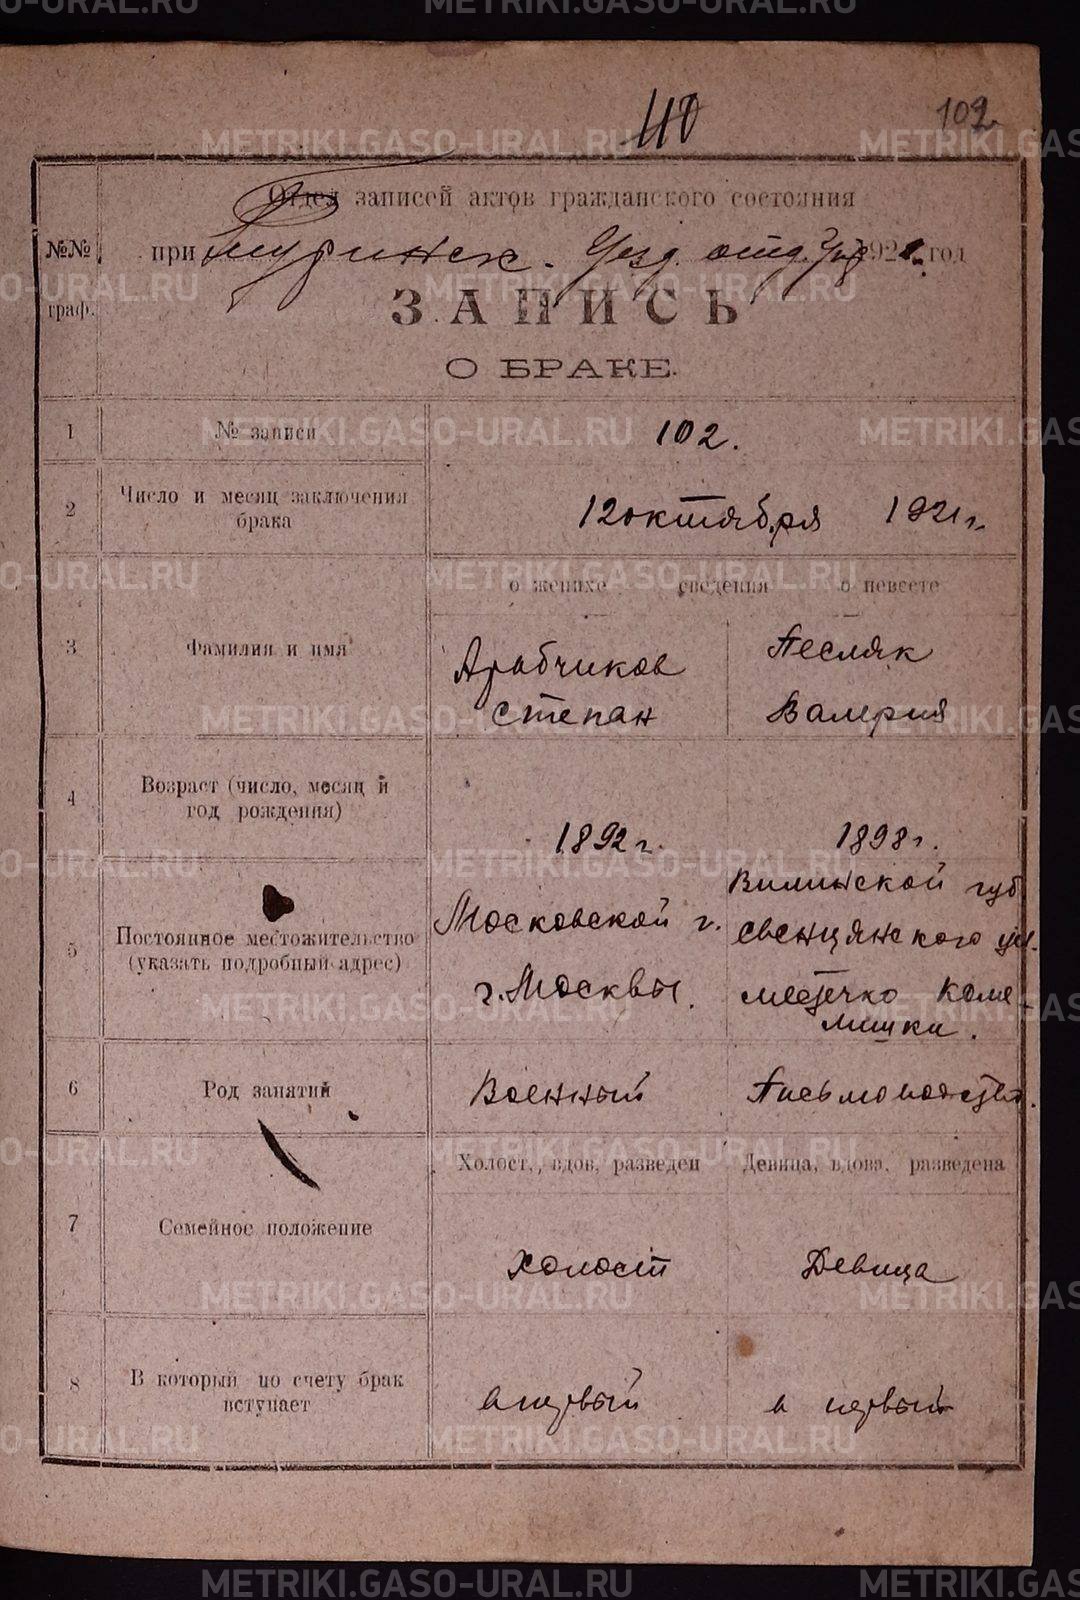 METRIKI.GASO-URAL.RU
110
102
Отдел записей актов гражданского состояния
№№ граф.
при Туринск. Уезд. отд. Упр 1921 год
ЗАПИСЬ
О БРАКЕ.
1 № записи 102.
2 Число и месяц заключения
брака
12 октября 1921 г.
о женихе сведения о невесте
3 Фамилия и имя
Арабчиков Песляк
Степан Валерия
4 Возраст (число, месяц и
год рождения)
1892 г. 1898 г.
5 Постоянное местожительство
(указать подробный адрес)
Московской г.
г. Москвы.
Виленской губ
Свенцянского уез.
местечко Каме-
лишки.
6 Род занятий Военный Письмоводство.
Холост, вдов, разведен Девица, вдова, разведена
7 Семейное положение
холост Девица
8 В который по счету брак
вступает
в первый в первый